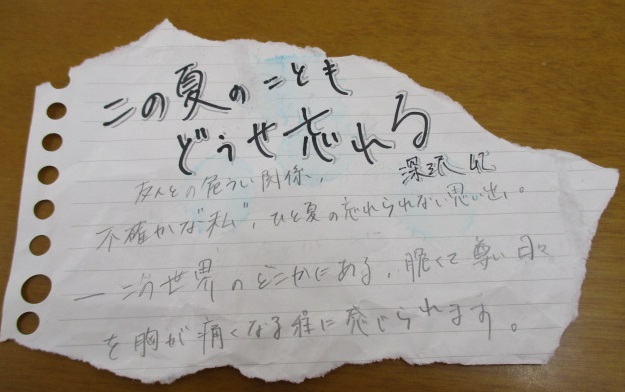 この夏のことも
どうせ忘れる
深沢 仁
友人との危うい関係、
不確かな"私"、ひと夏の忘れられない思い出。
―この世界のどこかにある、脆くて尊い日々
を胸が痛くなる程に感じられます。